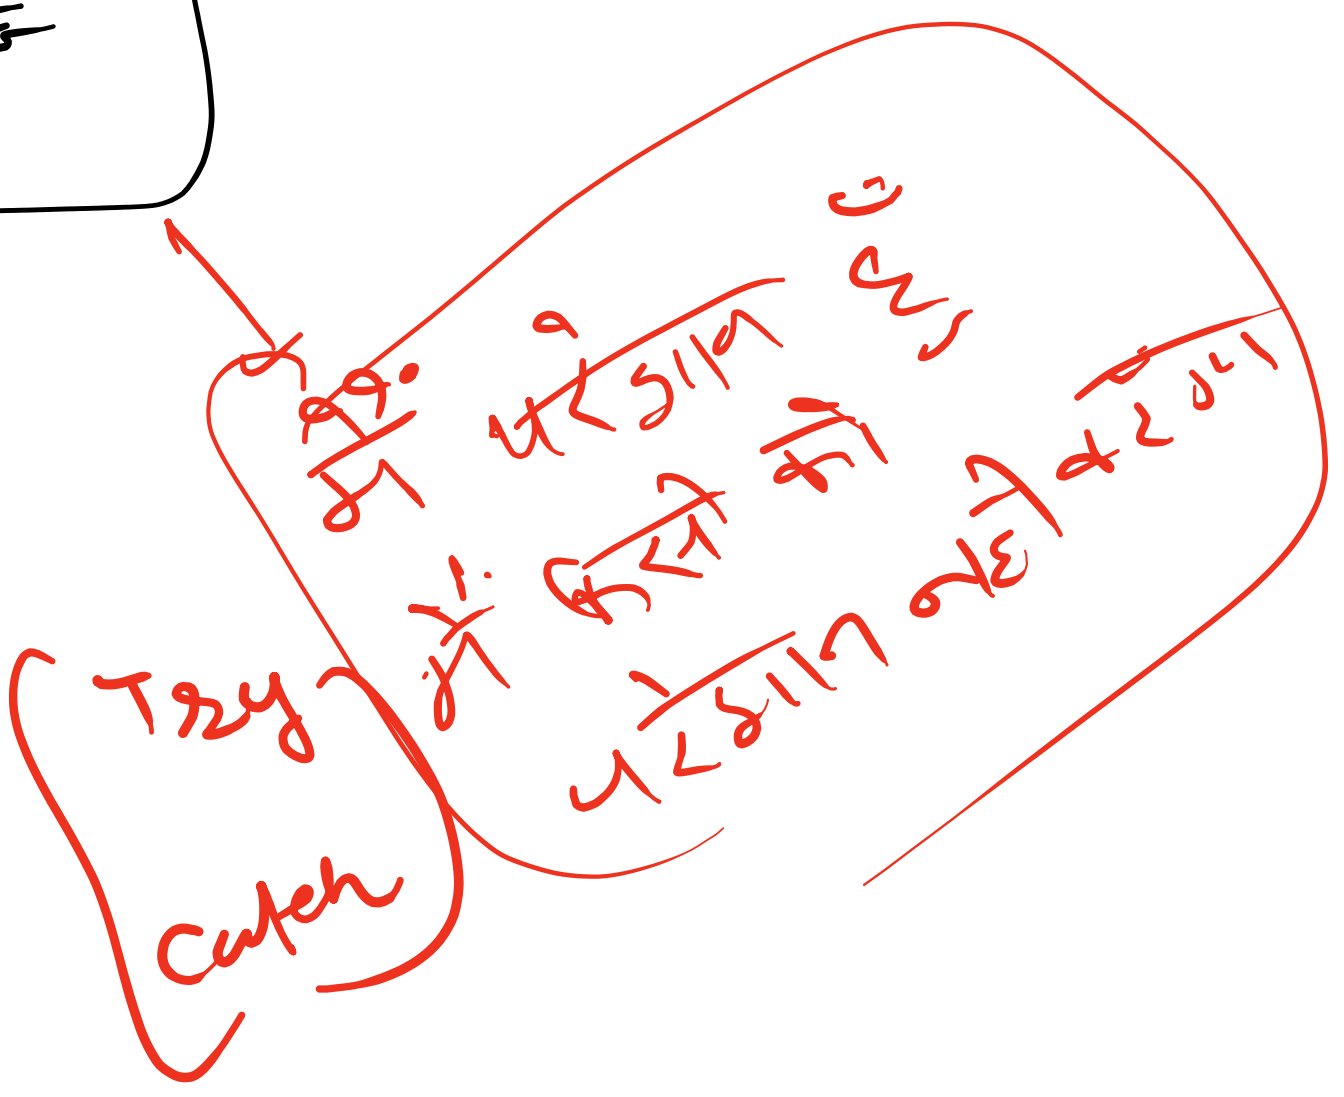 मैं परेशान हूँ
मैं किसी को
परेशान नही करूँगा
Try
Catch